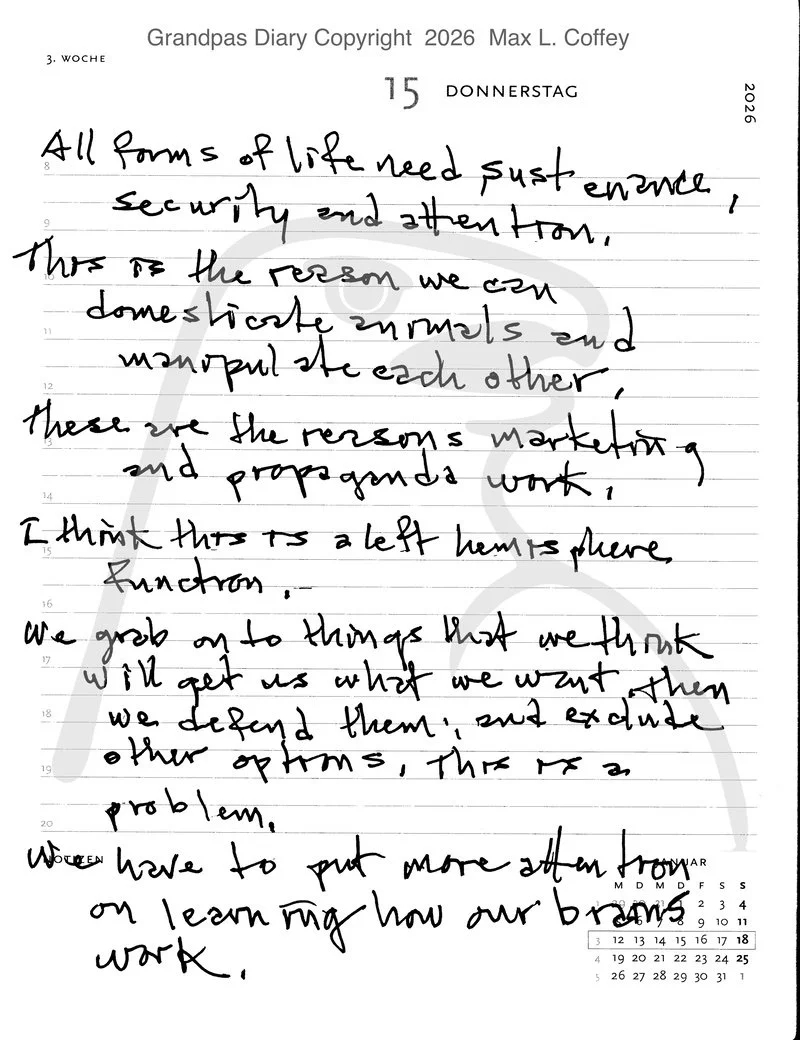 Grandpas Diary Copyright 2026 Max L. Coffey
3. WOCHE
15 DONNERSTAG
2026
All forms of life need sustenance,
security and attention.
This is the reason we can
domesticate animals and
manipulate each other.
These are the reasons marketing
and propaganda work.
I think this is a left hemisphere
function.
We grab on to things that we think
will get us what we want, then
we defend them, and exclude
other options. This is a
problem.
We have to put more attention
on learning how our brains
work.
8
9
10
11
12
13
14
15
16
17
18
19
20
NOTIZEN
JANUAR
M D M D F S S
1 29 30 31 1 2 3 4
2 5 6 7 8 9 10 11
3 12 13 14 15 16 17 18
4 19 20 21 22 23 24 25
5 26 27 28 29 30 31 1